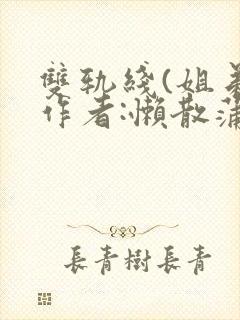 雙軌綫(姐弟
作者:懶散蒲
長青樹長青